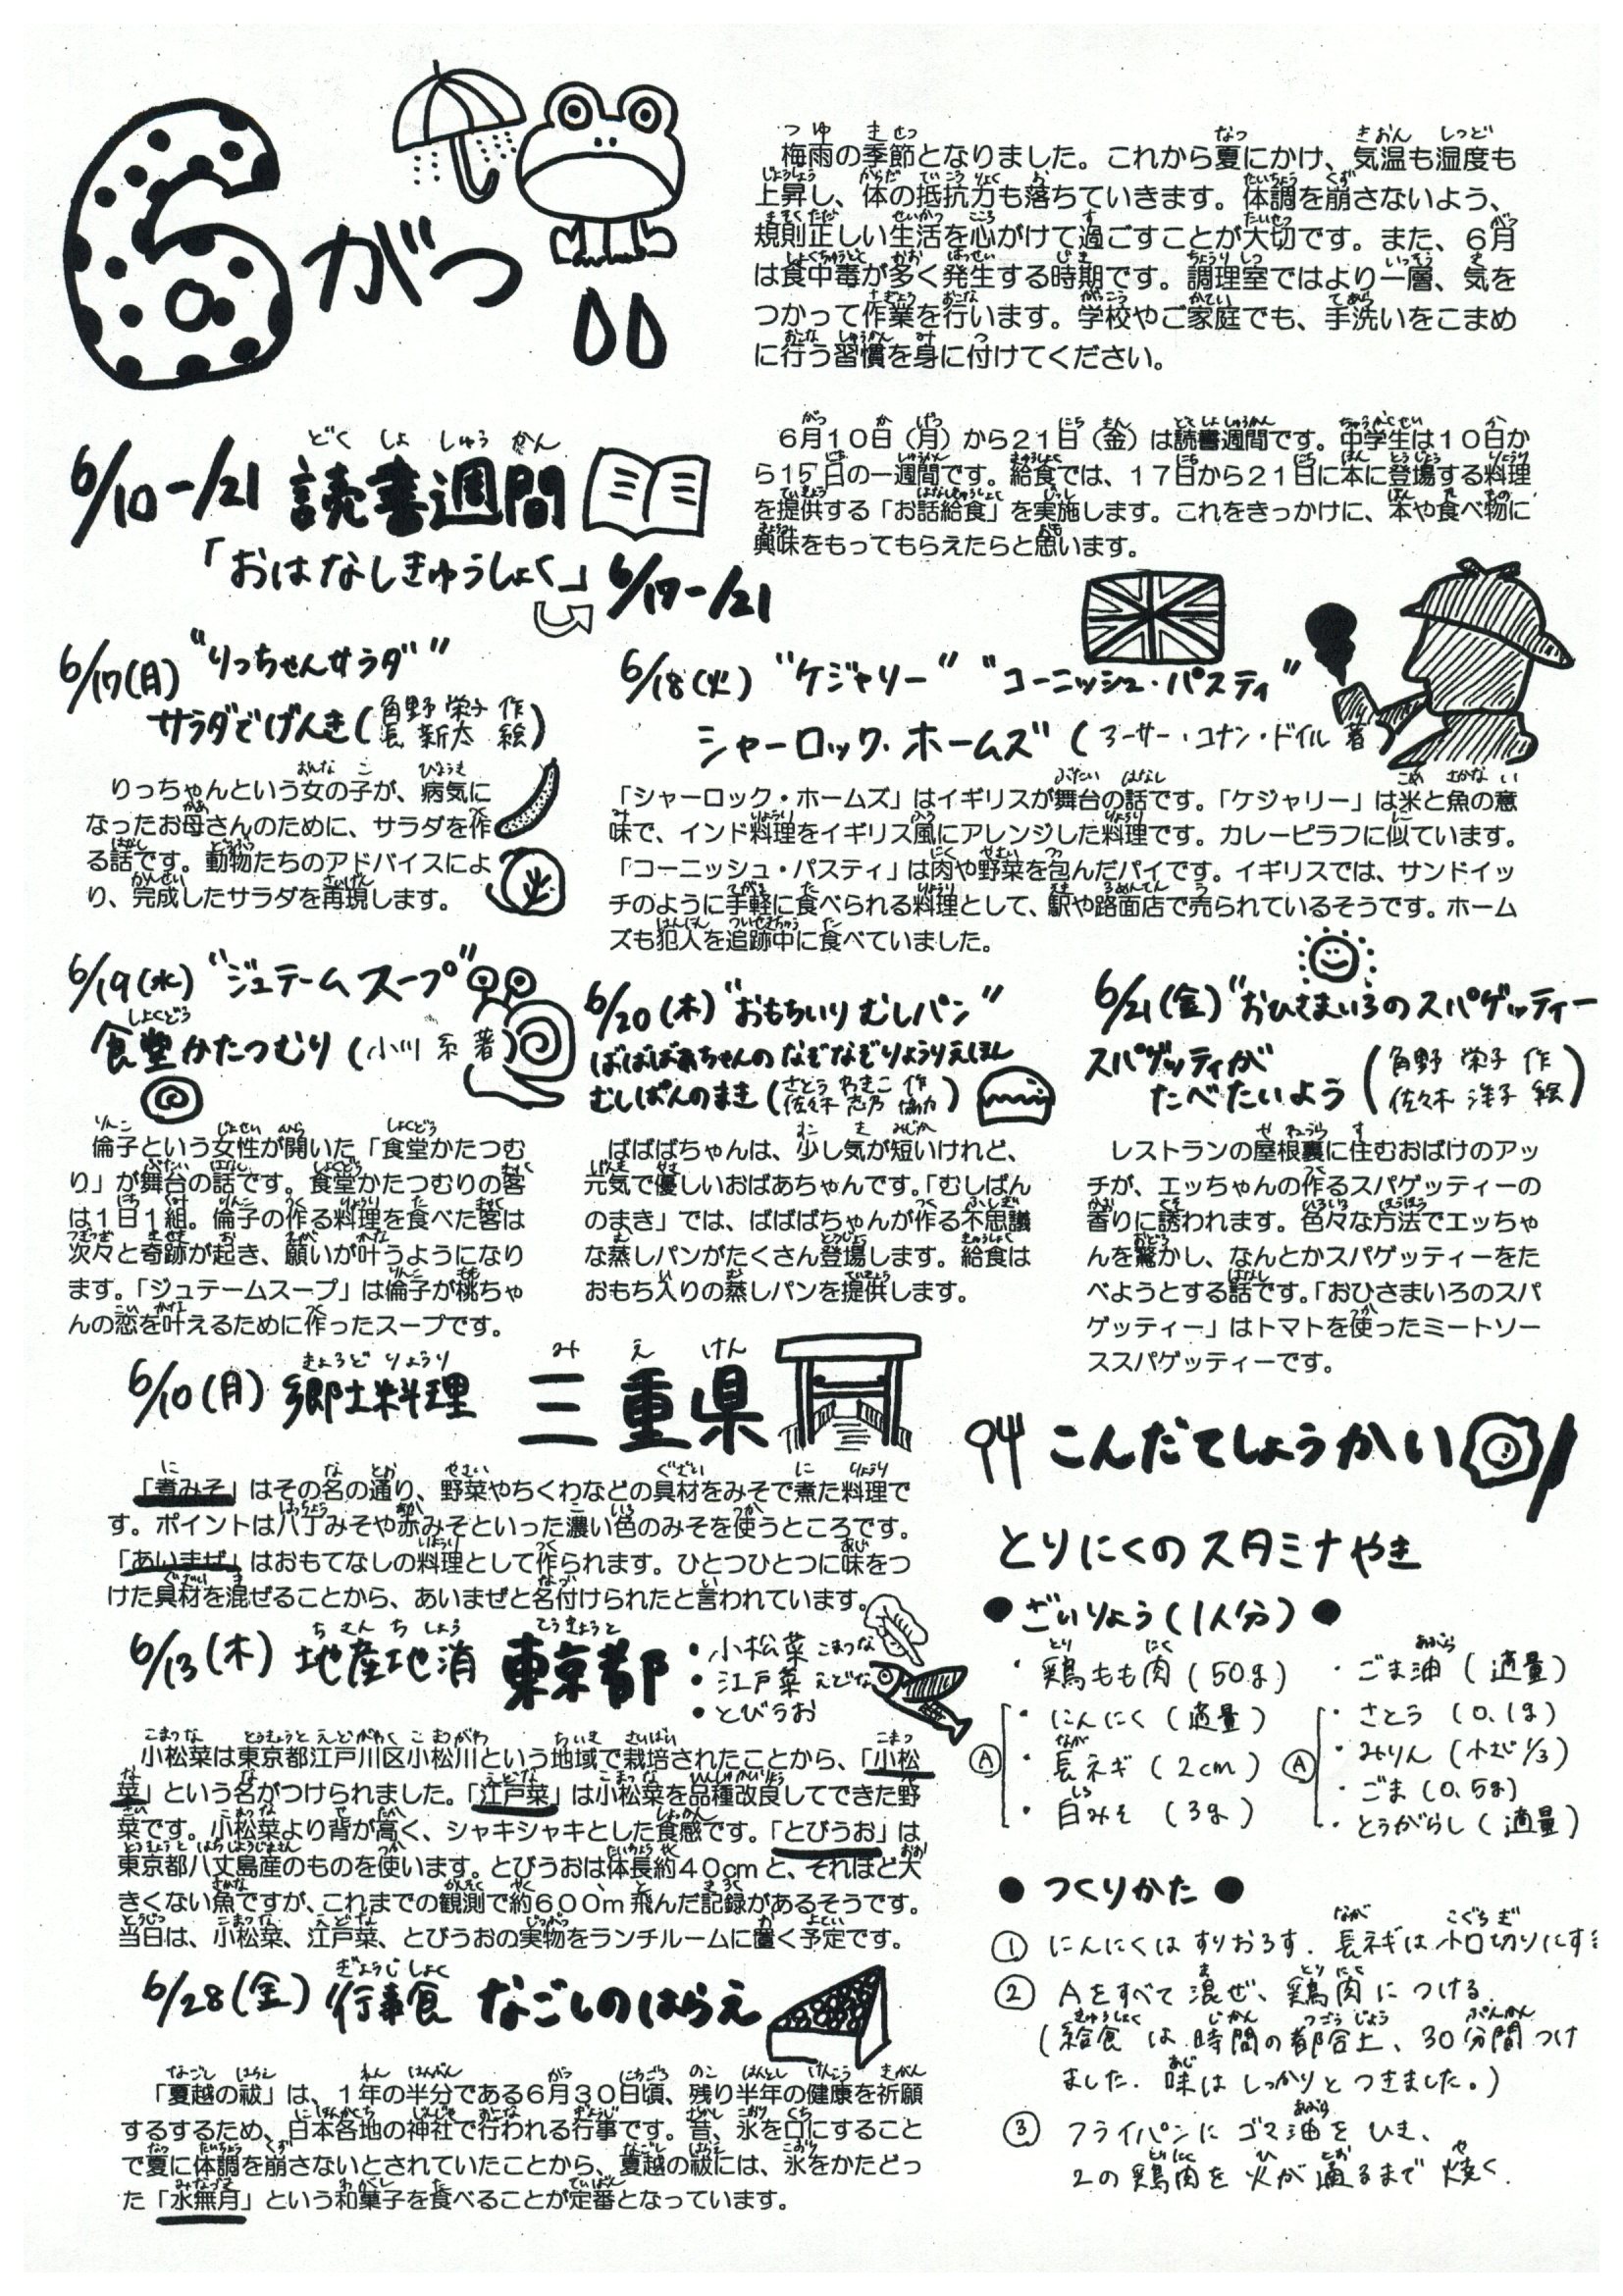 6がつ
梅雨の季節となりました。これから夏にかけ、気温も湿度も
上昇し、体の抵抗力も落ちていきます。体調を崩さないよう、
規則正しい生活を心がけて過ごすことが大切です。また、6月
は食中毒が多く発生する時期です。調理室ではより一層、気を
つかって作業を行います。学校やご家庭でも、手洗いをこまめ
に行う習慣を身に付けてください。
6/10-/21 読書週間
「おはなしきゅうしょく」6/17-/21
6月10日（月）から21日（金）は読書週間です。中学生は10日か
ら15日の一週間です。給食では、17日から21日に本に登場する料理
を提供する「お話給食」を実施します。これをきっかけに、本や食べ物に
興味をもってもらえたらと思います。
6/17(月) "りっちゃんサラダ"
サラダでげんき(角野 栄子 作
長 新太 絵)
りっちゃんという女の子が、病気に
なったお母さんのために、サラダを作
る話です。動物たちのアドバイスによ
り、完成したサラダを再現します。
6/18(火) "ケジャリー" "コーニッシュ・パスティ"
シャーロック・ホームズ (アーサー・コナン・ドイル 著)
「シャーロック・ホームズ」はイギリスが舞台の話です。「ケジャリー」は米と魚の意
味で、インド料理をイギリス風にアレンジした料理です。カレーピラフに似ています。
「コーニッシュ・パスティ」は肉や野菜を包んだパイです。イギリスでは、サンドイッ
チのように手軽に食べられる料理として、駅や路面店で売られているそうです。ホーム
ズも犯人を追跡中に食べていました。
6/19(水) "ジュテームスープ"
食堂かたつむり (小川 糸 著)
倫子という女性が開いた「食堂かたつむ
り」が舞台の話です。食堂かたつむりの客
は1日1組。倫子の作る料理を食べた客は
次々と奇跡が起き、願いが叶うようになり
ます。「ジュテームスープ」は倫子が桃ちゃ
んの恋を叶えるために作ったスープです。
6/20(木) "おもちいりむしパン"
ばばばあちゃんの なぞなぞりょうりえほん
むしぱんのまき (さとう わきこ 作
佐々木 志乃 協力)
ばばばちゃんは、少し気が短いけれど、
元気で優しいおばあちゃんです。「むしぱん
のまき」では、ばばばちゃんが作る不思議
な蒸しパンがたくさん登場します。給食は
おもち入りの蒸しパンを提供します。
6/21(金) "おひさまいろのスパゲッティー
スパゲッティが
たべたいよう (角野 栄子 作
佐々木 洋子 絵)
レストランの屋根裏に住むおばけのアッ
チが、エッちゃんの作るスパゲッティーの
香りに誘われます。色々な方法でエッちゃ
んを驚かし、なんとかスパゲッティーをた
べようとする話です。「おひさまいろのスパ
ゲッティー」はトマトを使ったミートソー
ススパゲッティーです。
6/10(月) 郷土料理 三重県
「煮みそ」はその名の通り、野菜やちくわなどの具材をみそで煮た料理で
す。ポイントは八丁みそや赤みそといった濃い色のみそを使うところです。
「あいまぜ」はおもてなしの料理として作られます。ひとつひとつに味をつ
けた具材を混ぜることから、あいまぜと名付けられたと言われています。
6/13(木) 地産地消 東京都
・小松菜 こまつな
・江戸菜 えどな
・とびうお
小松菜は東京都江戸川区小松川という地域で栽培されたことから、「小松
菜」という名がつけられました。「江戸菜」は小松菜を品種改良してできた野
菜です。小松菜より背が高く、シャキシャキとした食感です。「とびうお」は
東京都八丈島産のものを使います。とびうおは体長約40cmと、それほど大
きくない魚ですが、これまでの観測で約600m飛んだ記録があるそうです。
当日は、小松菜、江戸菜、とびうおの実物をランチルームに置く予定です。
6/28(金) 行事食 なごしのはらえ
「夏越の祓」は、1年の半分である6月30日頃、残り半年の健康を祈願
するするため、日本各地の神社で行われる行事です。昔、氷を口にすること
で夏に体調を崩さないとされていたことから、夏越の祓には、氷をかたどっ
た「水無月」という和菓子を食べることが定番となっています。
こんだてしょうかい
とりにくのスタミナやき
●ざいりょう(1人分)●
・鶏もも肉 (50g)
Ⓐ
・にんにく (適量)
・長ネギ (2cm)
・白みそ (3g)
・ごま油 (適量)
Ⓐ
・さとう (0.1g)
・みりん (小さじ1/3)
・ごま (0.5g)
・とうがらし (適量)
●つくりかた●
① にんにくは すりおろす. 長ネギは小口切りにする
② Aをすべて混ぜ、鶏肉につける.
(給食は時間の都合上、30分間つけ
ました. 味はしっかりとつきました。)
③ フライパンにゴマ油をひき、
2の鶏肉を火が通るまで焼く.